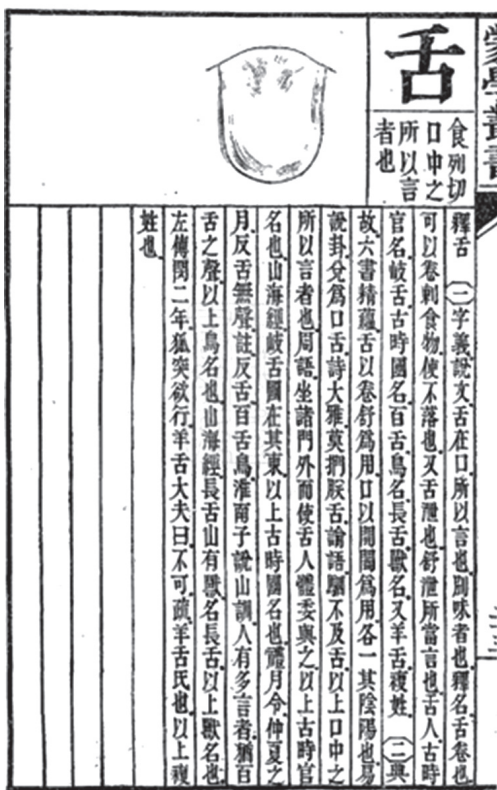 蒙學叢書
舌
食列切
口中之
所以言
者也
釋舌 (一)字義說文舌在口所以言也別味者也釋名舌卷也
可以卷制食物使不落也又舌泄也舒泄所當言也舌人古時
官名岐舌古時國名百舌鳥名長舌獸名又羊舌複姓 (二)典
故六書精蘊舌以卷舒爲用口以開闔爲用各一其陰陽也易
說卦兌爲口舌詩大雅莫捫朕舌論語駟不及舌以上口中之
所以言者也周語坐諸門外而使舌人體委與之以上古時官
名也山海經岐舌國在其東以上古時國名也禮月令仲夏之
月反舌無聲註反舌百舌鳥淮南子說山訓人有多言者猶百
舌之聲以上鳥名也山海經長舌山有獸名長舌以上獸名也
左傳閔二年狐突欲行羊舌大夫曰不可疏羊舌氏也以上複
姓也